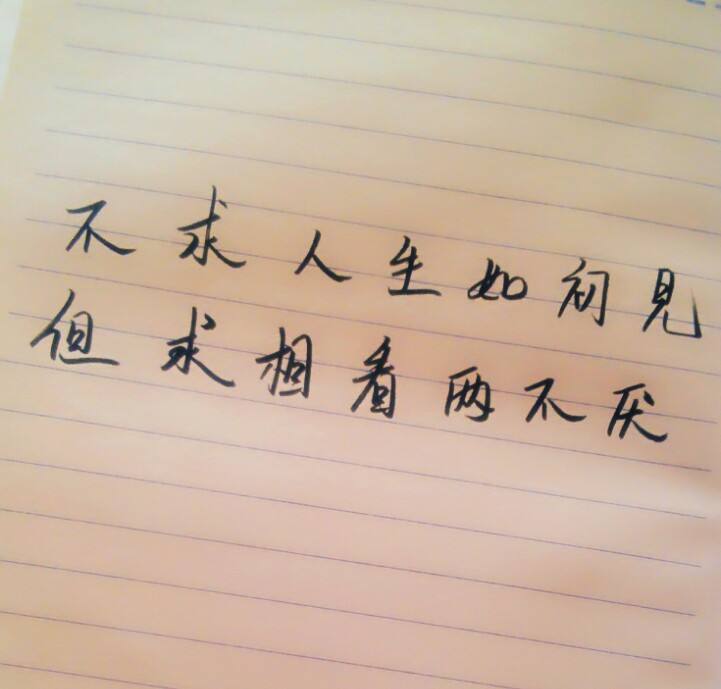 不求人生如初见
但求相看两不厌